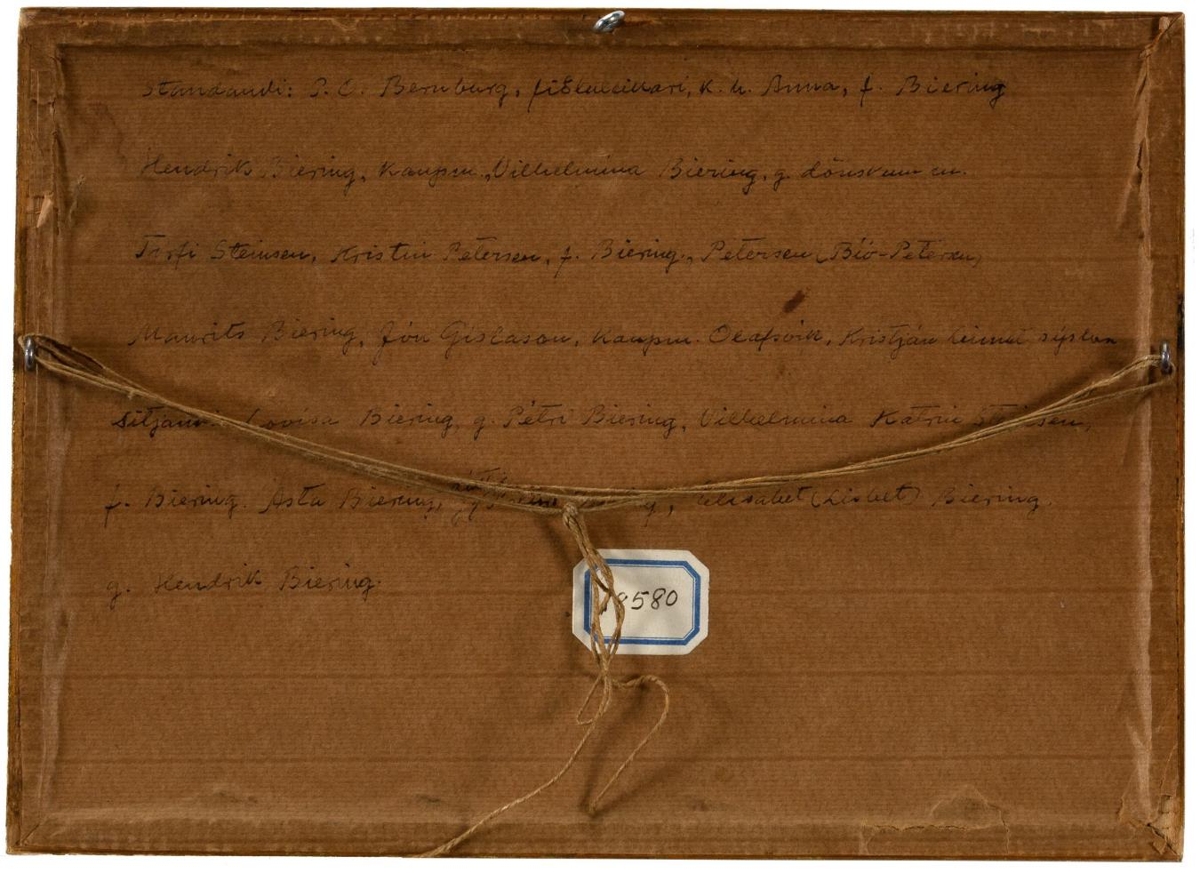 Standandi: P. O. Bernburg, fiðluleikari, k. h. Anna, f. Biering
Hendrik Biering, kaupm., Vilhelmina Biering, g. dönskum m.
Steinsen, Kristin Petersen, f. Biering., Petersen (Bíó-Petersen)
Maurits Biering, Jón Gislason, kaupm. Olafsvik, Kristján
Sitjandi: Lovisa Biering, g. Pétri Biering, Vilhelmina Katrin Steinsen,
f. Biering. Asta Biering, Elisabet (Lisbet) Biering.
g. Hendrik Biering.
580